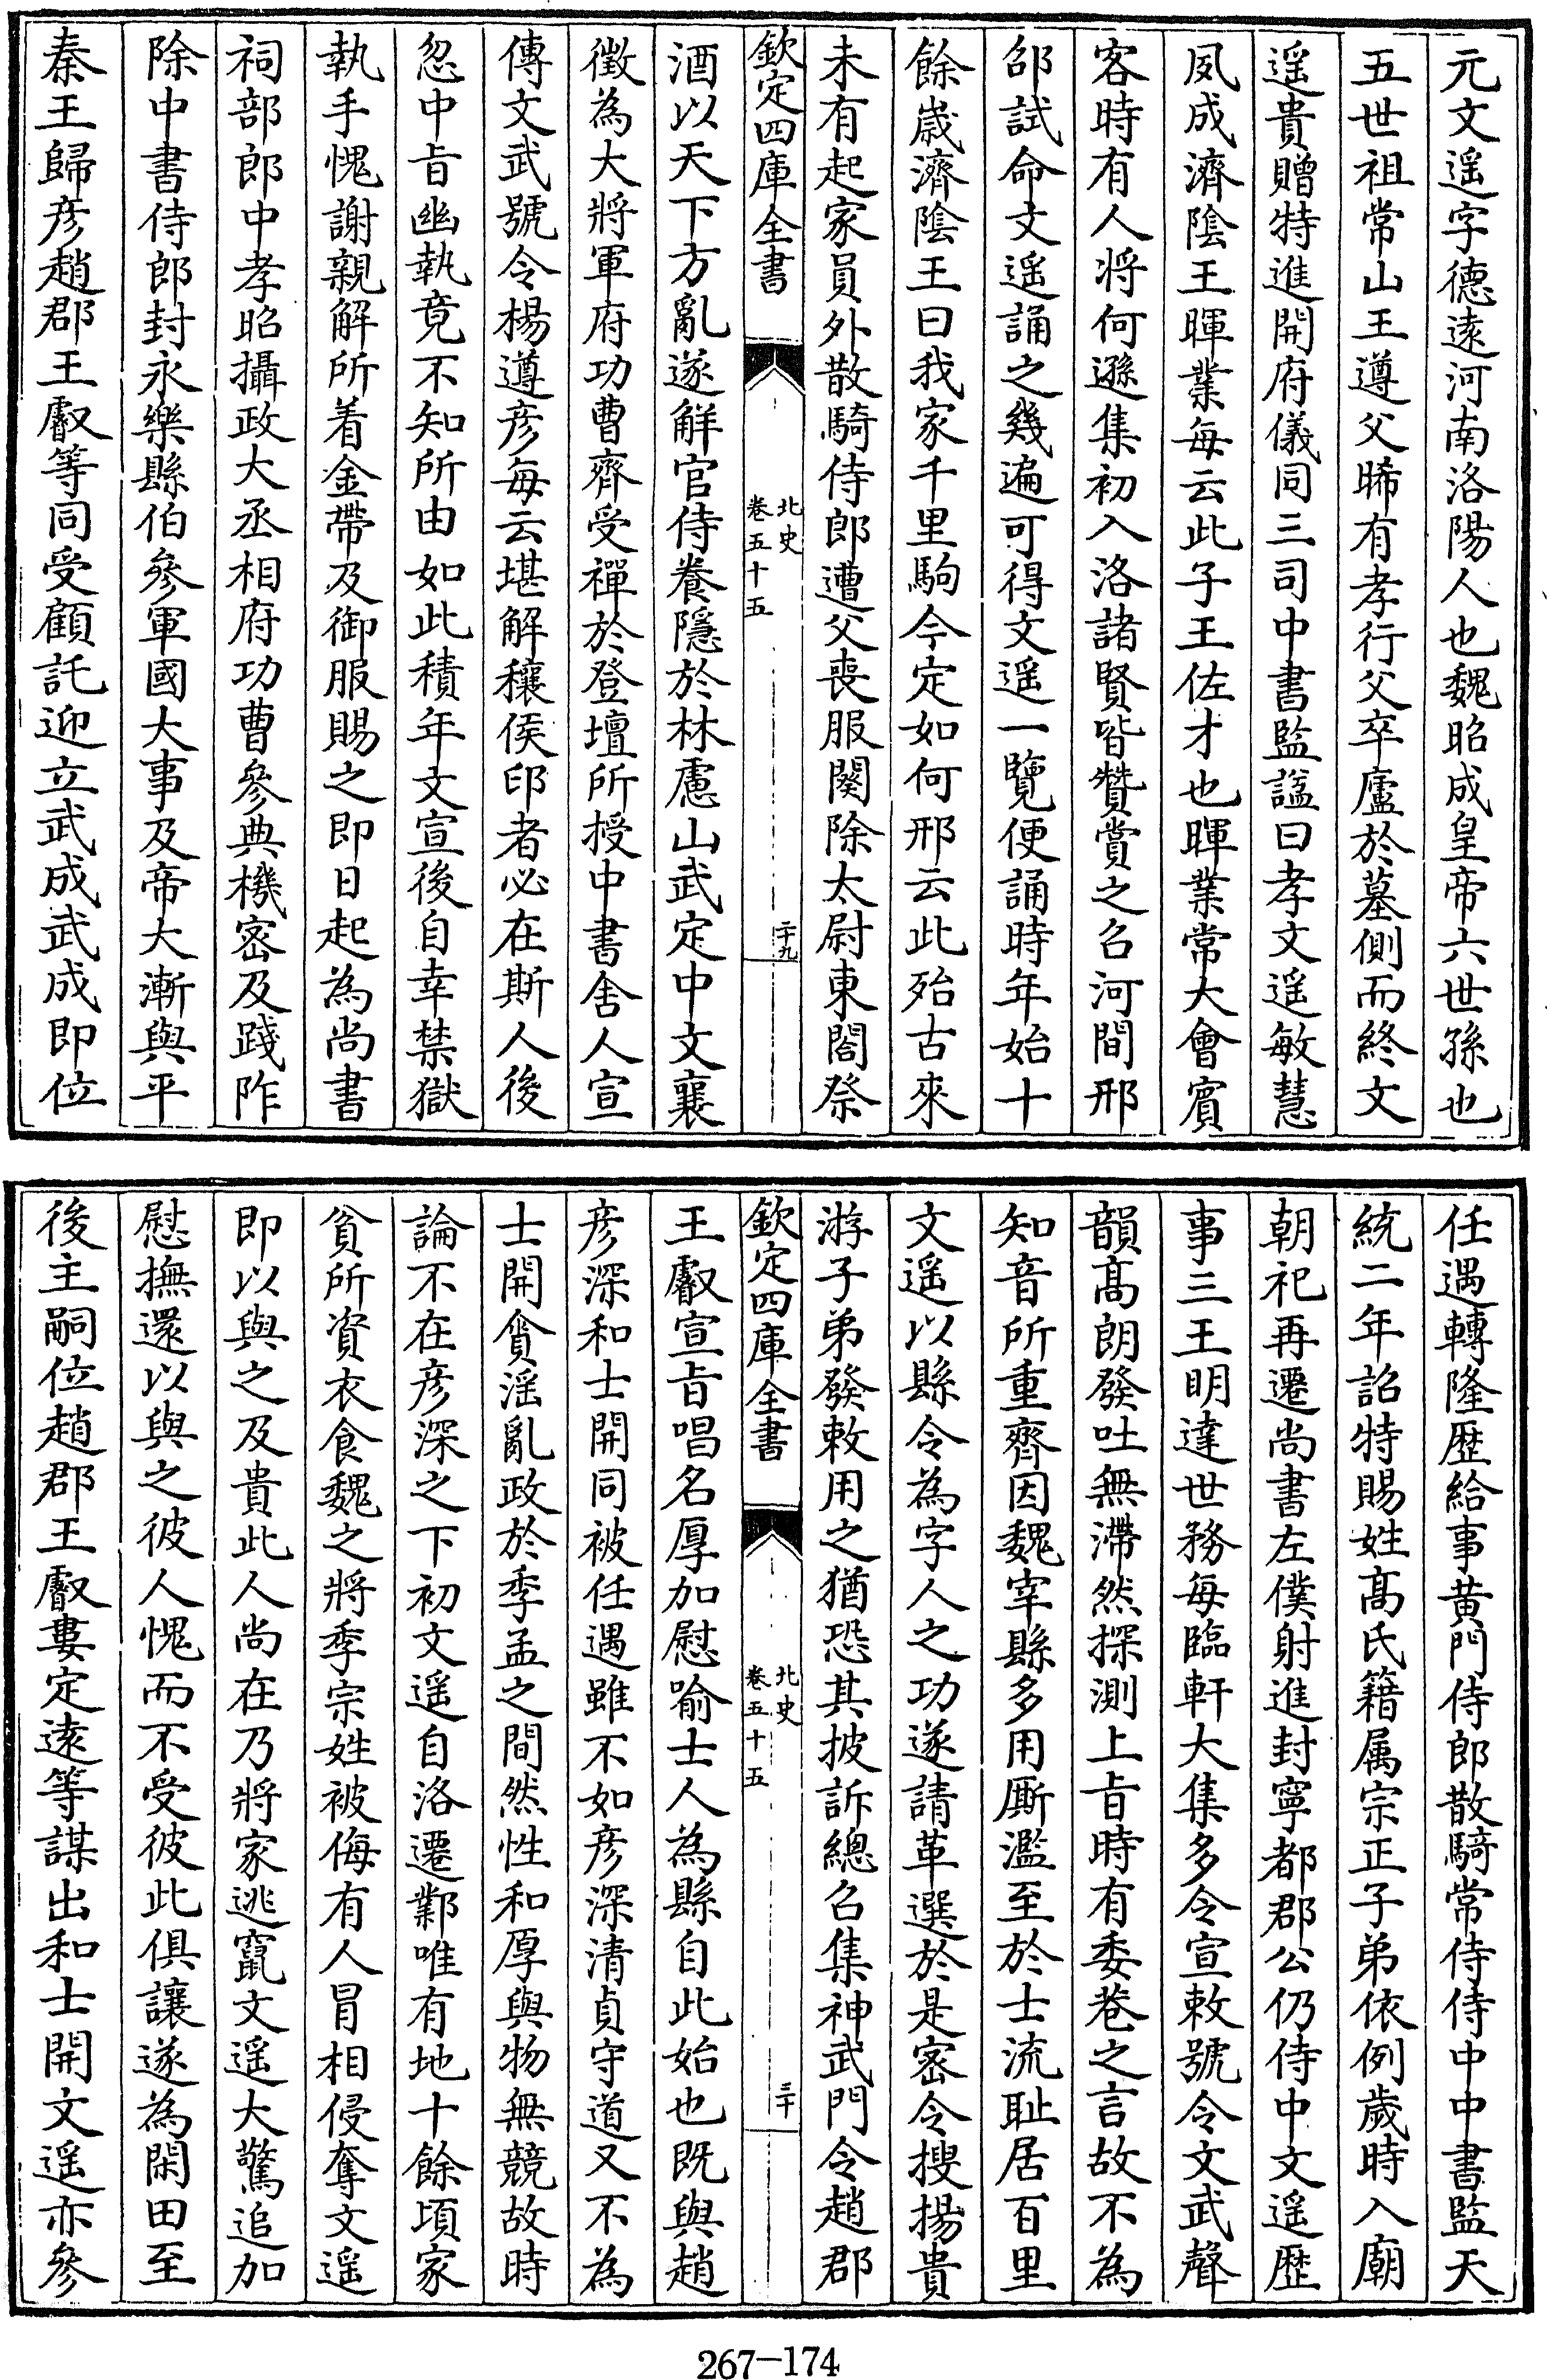 元文遥字德逺河南洛陽人也魏昭成皇帝六世孫也
五世祖常山王遵父晞有孝行父卒廬於墓側而終文
遥貴贈特進開府儀同三司中書監諡曰孝文遥敏慧
夙成濟陰王暉業每云此子王佐才也暉業常大會賔
客時有人将何遜集初入洛諸賢皆贊賞之召河間邢
邵試命文遥誦之幾遍可得文遥一覽便誦時年始十
餘嵗濟陰王曰我家千里駒今定如何邢云此殆古來
未有起家員外散騎侍郎遭父喪服闋除太尉東閤祭
欽定四庫全書
北史
卷五十五
二十九
酒以天下方亂遂解官侍養隱於林慮山武定中文襄
徵為大將軍府功曹齊受禪於登壇所授中書舍人宣
傳文武號令楊遵彦每云堪解穰侯印者必在斯人後
忽中旨幽執竟不知所由如此積年文宣後自幸禁獄
執手愧謝親解所着金帶及御服賜之即日起為尚書
祠部郎中孝昭攝政大丞相府功曹參典機宻及踐阼
除中書侍郎封永樂縣伯參軍國大事及帝大漸與平
秦王歸彦趙郡王叡等同受顧託迎立武成武成即位
任遇轉隆歴給事黄門侍郎散騎常侍侍中中書監天
統二年詔特賜姓髙氏籍属宗正子弟依例歲時入廟
朝祀再遷尚書左僕射進封寧都郡公仍侍中文遥歴
事三王明達世務每臨軒大集多令宣敕號令文武聲
韻髙朗發吐無滯然探測上旨時有委巷之言故不為
知音所重齊因魏宰縣多用厮濫至於士流耻居百里
文遥以縣令為字人之功遂請革選於是宻令搜揚貴
游子弟發敕用之猶恐其披訴總召集神武門令趙郡
欽定四庫全書
北史
卷五十五
三十
王叡宣旨唱名厚加慰喻士人為縣自此始也既與趙
彦深和士開同被任遇雖不如彦深清貞守道又不為
士開貪淫亂政於季孟之間然性和厚與物無競故時
論不在彦深之下初文遥自洛遷鄴唯有地十餘頃家
貧所資衣食魏之將季宗姓被侮有人冒相侵奪文遥
即以與之及貴此人尚在乃將家逃竄文遥大驚追加
慰撫還以與之彼人愧而不受彼此俱讓遂為閑田至
後主嗣位趙郡王叡婁定逺等謀出和士開文遥亦參
267-174